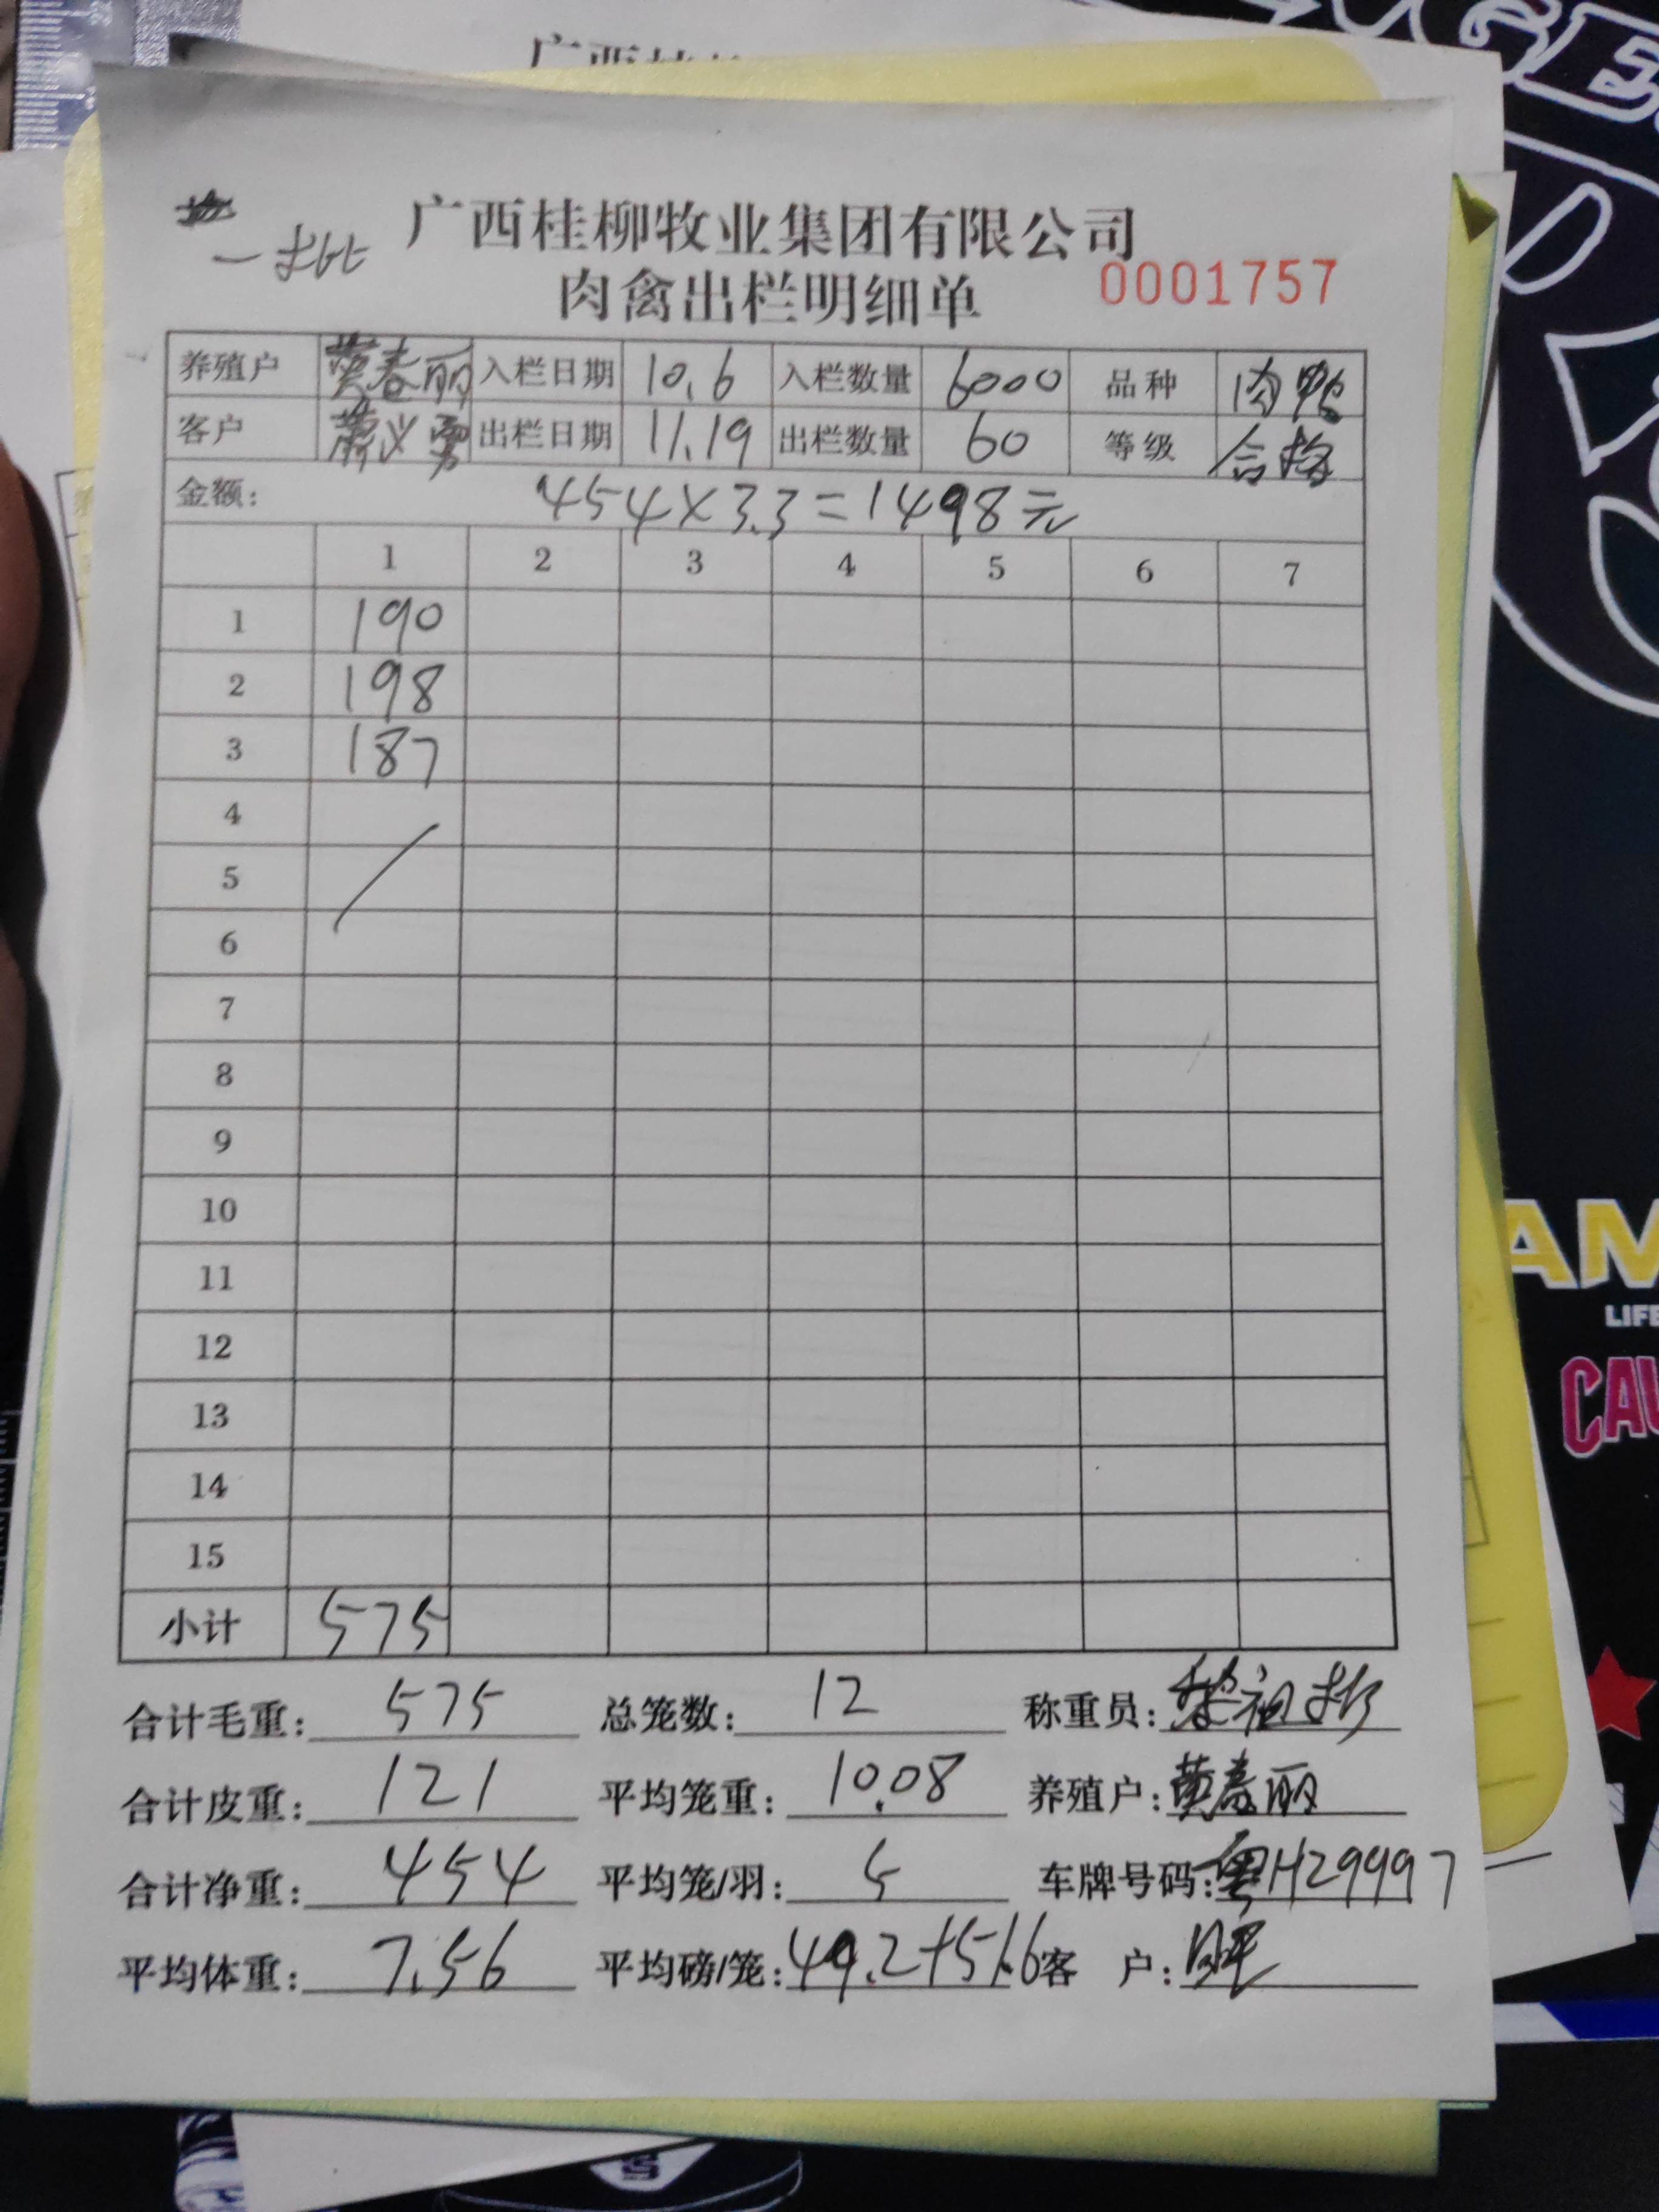 一批
广西桂柳牧业集团有限公司
肉禽出栏明细单 0001757
养殖户 黄春丽 入栏日期 10.6 入栏数量 6000 品种 肉鸭
客户 出栏日期 11.19 出栏数量 60 等级 合格
金额: 454×3.3=1498元
1 2 3 4 5 6 7
1 190
2 198
3 187
4
5
6
7
8
9
10
11
12
13
14
15
小计 575
合计毛重: 575 总笼数: 12 称重员:
合计皮重: 121 平均笼重: 10.08 养殖户: 黄春丽
合计净重: 454 平均笼/羽: 5 车牌号码: 粤H29997
平均体重: 7.56 平均磅/笼: 49.2+51.6 客 户:
AM
LIFE